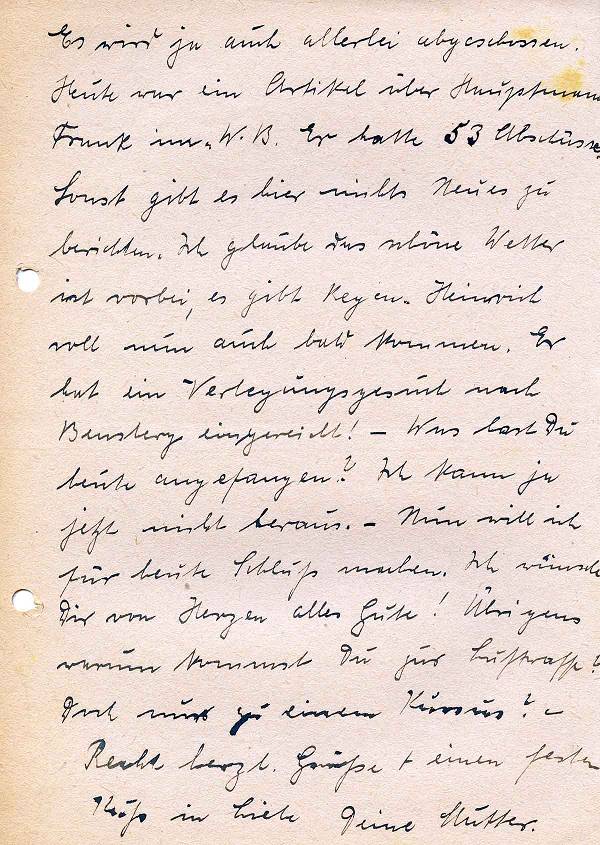 Es wird ja auch allerlei abgeschossen.
Heute war ein Artikel über Hauptmann
Frank im „W.B. Er hatte 53 Abschüsse.
Sonst gibt es hier nichts Neues zu
berichten. Ich glaube das schöne Wetter
ist vorbei, es gibt Regen. Heinrich
soll nun auch bald kommen. Er
hat ein Verlegungsgesuch nach
Bensberg eingereicht! – Was hast Du
heute angefangen? Ich kann ja
jetzt nicht heraus. – Nun will ich
für heute Schluß machen. Ich wünsche
Dir von Herzen alles Gute! Übrigens
warum kommst Du zur Luftwaffe?
Doch nur zu einem Kursus? –
Recht herzl. Grüße + einen festen
Kuß in Liebe Deine Mutter.